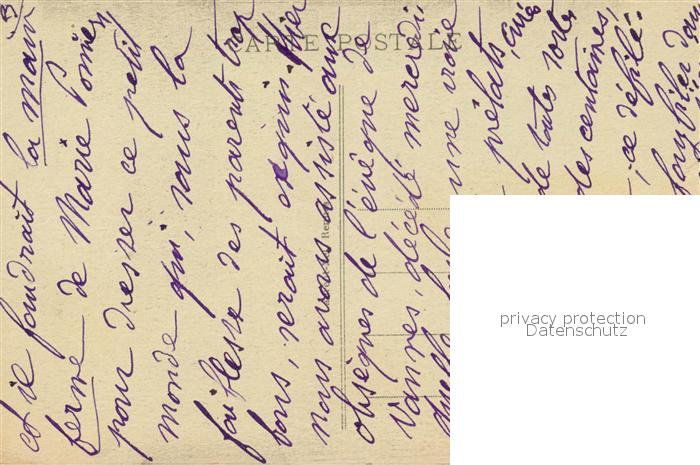 CARTE POSTALE
3
et il faudrait la main
ferme de Marie Pomier,
pour dresser ce petit
monde qui, sous la
faiblesse des parents trop
bons, serait
nous avons assisté aux
obsèques de l'évêque de
Vannes, décédé mercredi
une vraie
prélats, curés
de toutes sortes
des centaines,
, ce défilé.
privacy protection
Datenschutz